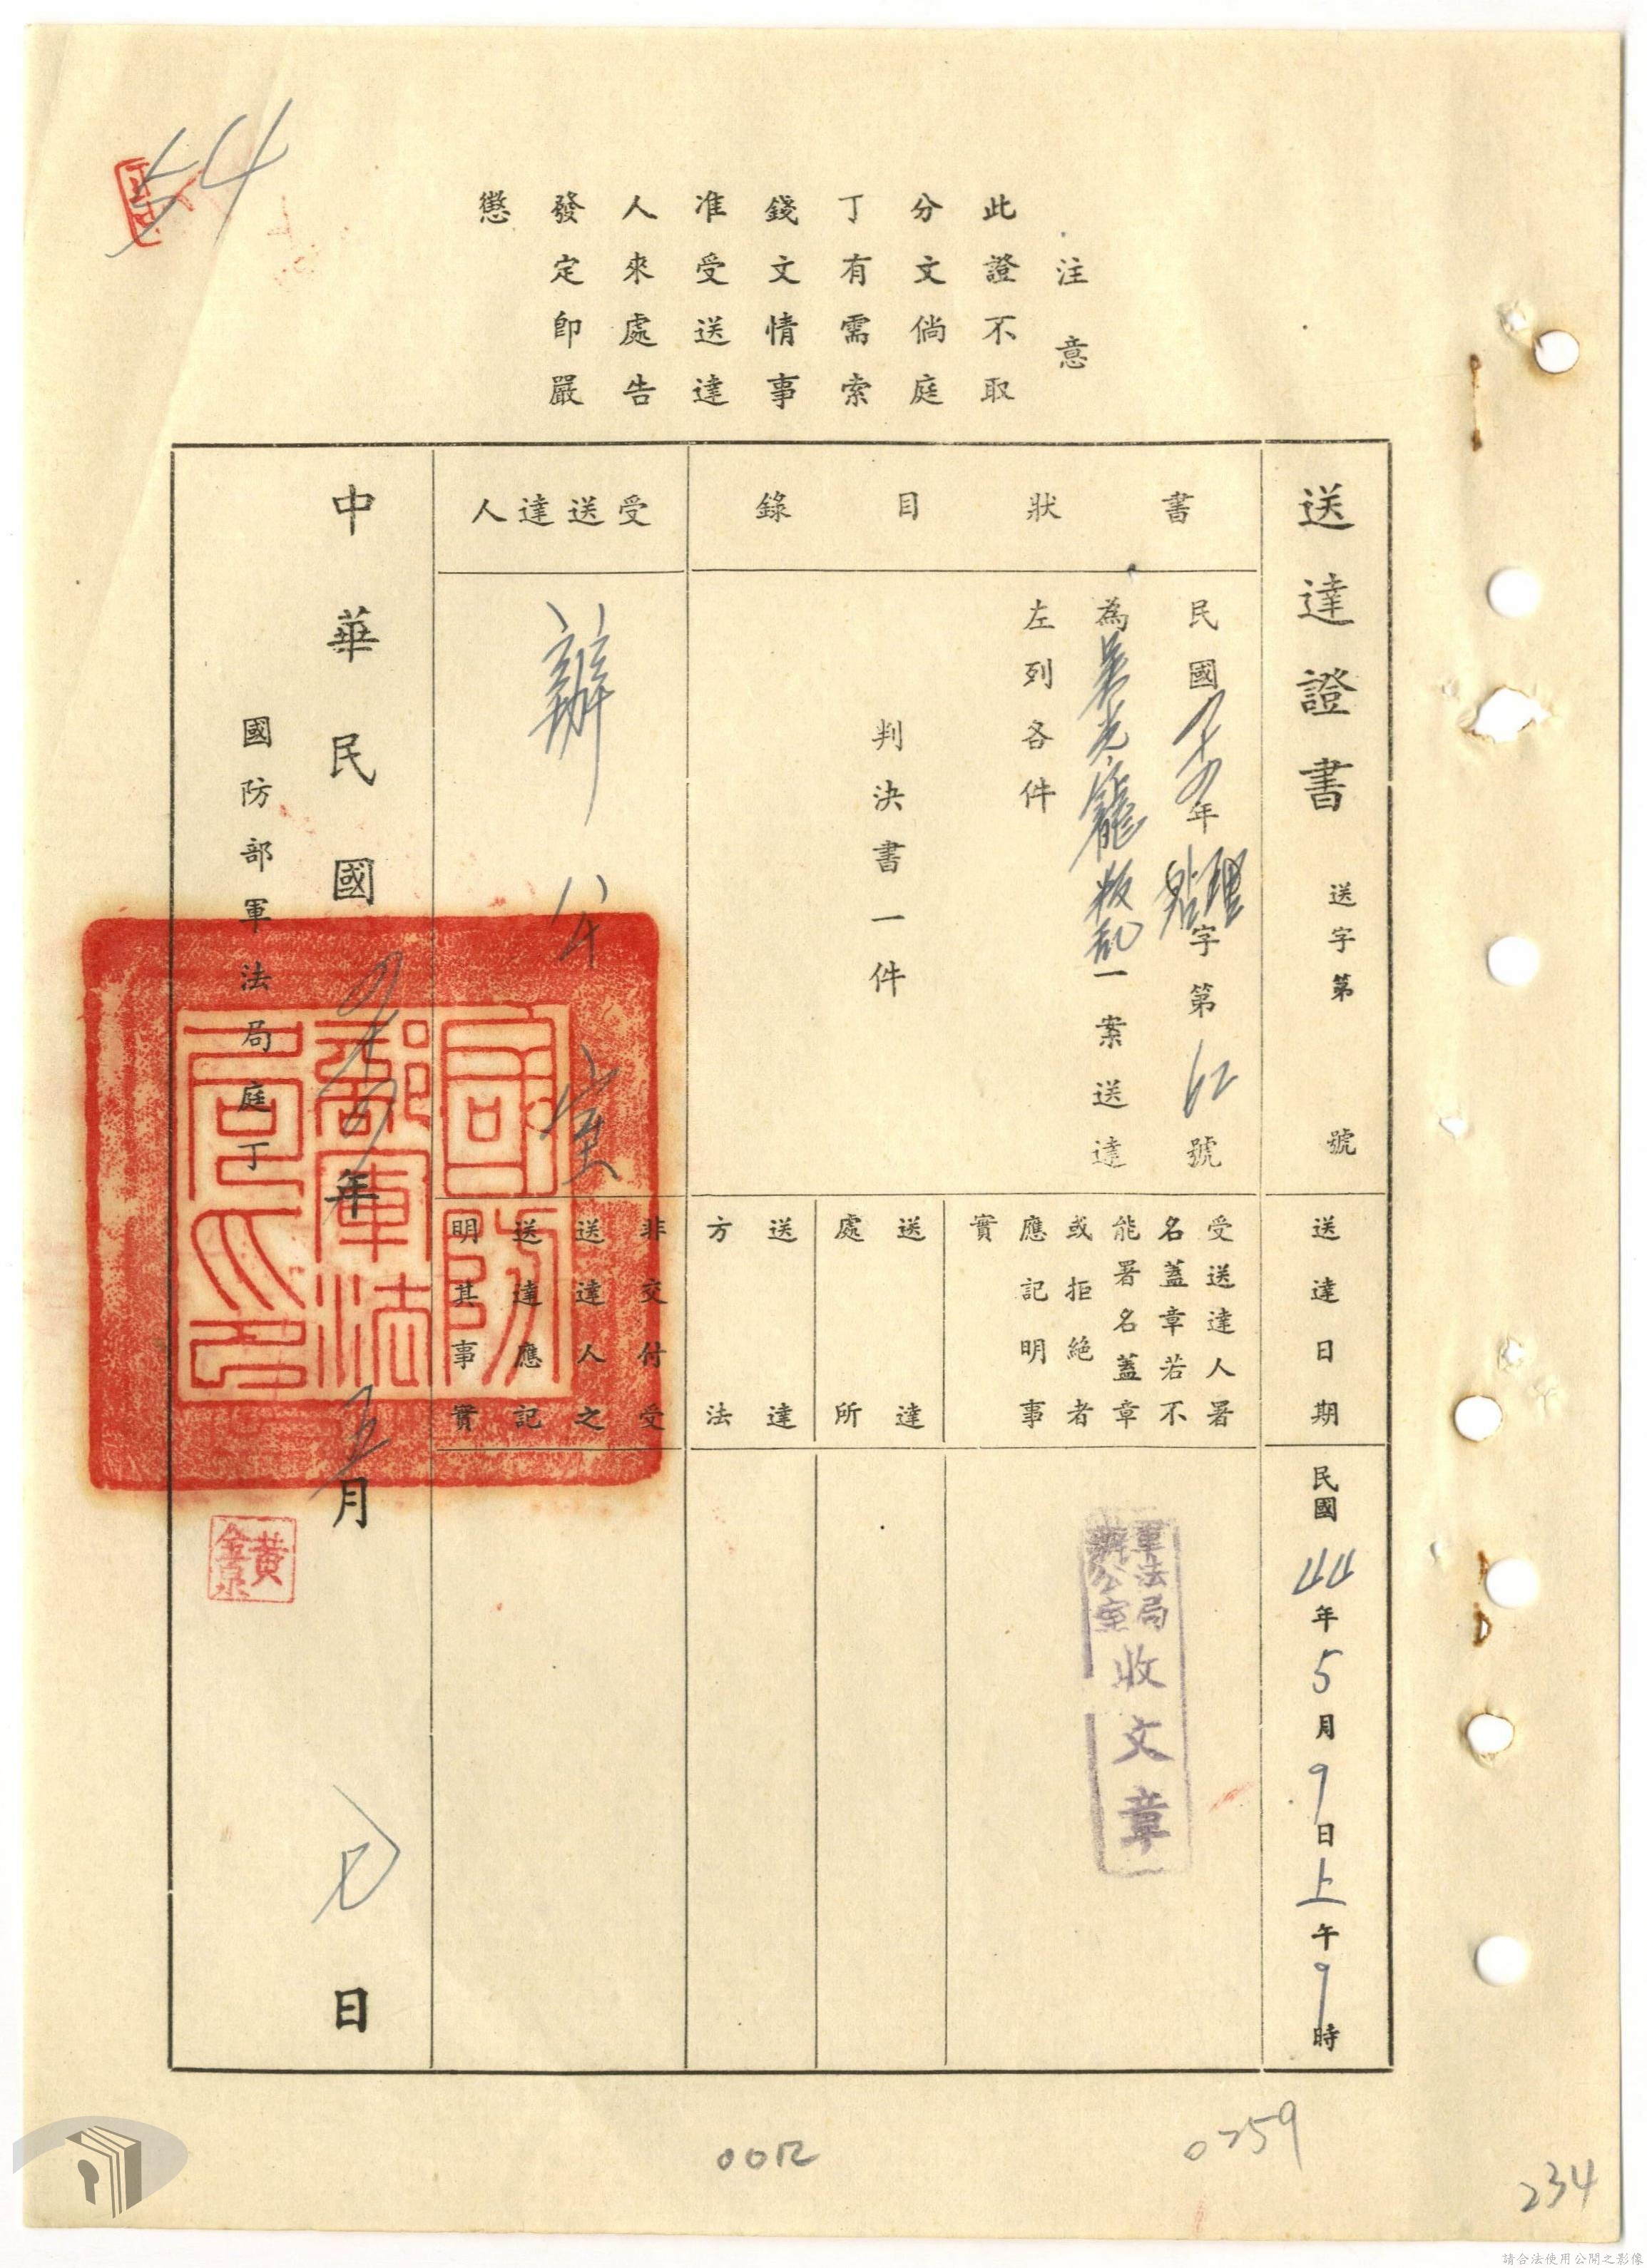 54
注意
此證不取
分文倘庭
丁有需索
錢文情事
准受送達
人來處告
發定即嚴
懲
送達證書 送字第 號
書狀目錄
民國四十四年理字第62號
為吳光籠叛乱一案送達
左列各件
判決書一件
受送達人
辦公室
送達日期
民國44年5月9日上午9時
受送達人署
名蓋章若不
能署名蓋章
或拒絕者
應記明事
實
軍法局
辦公室
收文章
送達
處所
送達
方法
非交付受
送達人之
送達應記
明其事實
中華民國四十四年五月七日
國防部軍法局庭丁
國防
部軍法
局印
黃金泉
0259
234
請合法使用公開之影像